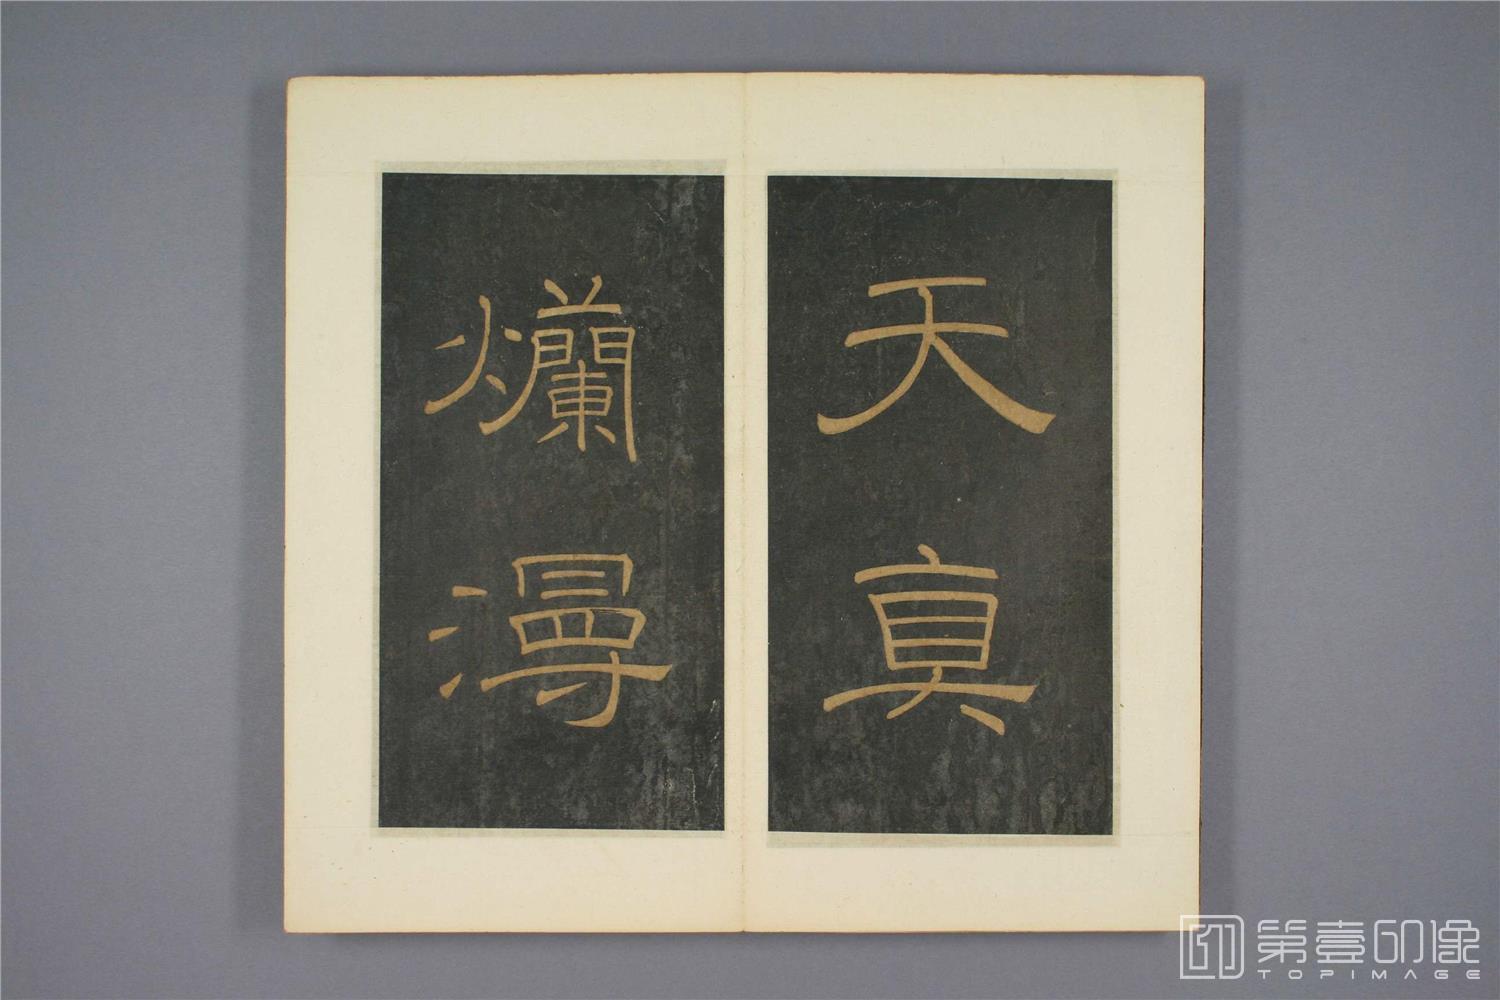 天真
爛漫
第壹印像
TOPIMAGE